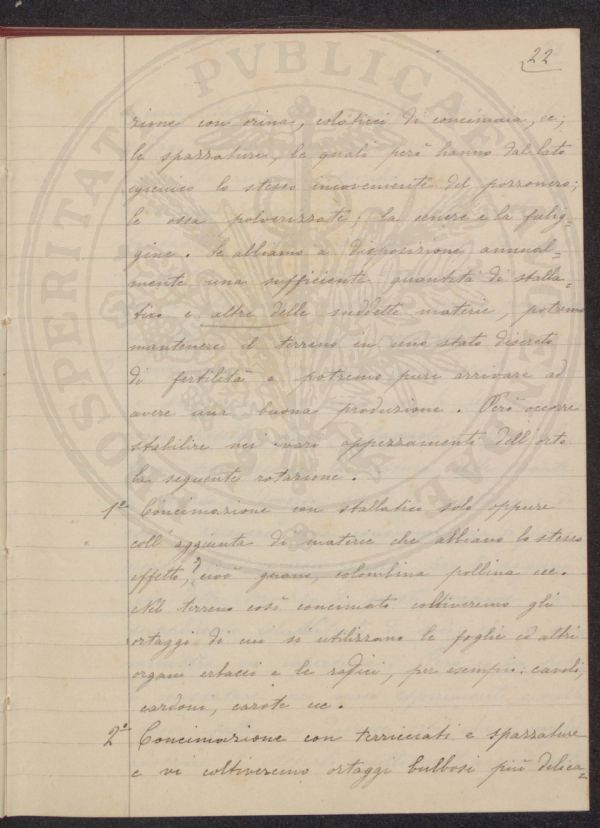 22
zione con orina, colaticci di concimaia, ec;
le spazzature, le quali però hanno dal lato
igienico lo stesso inconveniente del pozzonero;
le ossa polverizzate; la cenere e la fulig-
gine. Se abbiamo a disposizione annual-
mente una sufficiente quantità di stalla-
tico e altre delle suddette materie, potremo
mantenere il terreno in uno stato discreto
di fertilità e potremo pure arrivare ad
avere una buona produzione. Però occorre
stabilire nei vari appezzamenti dell'orto
la seguente rotazione.
1º Concimazione con stallatico solo oppure
coll'aggiunta di materie che abbiano lo stesso
effetto, cioè guano, colombina pollina ecc.
Nel terreno così concimato coltiveremo gli
ortaggi di cui si utilizzano le foglie ed altri
organi erbacei e le radici, per esempio: cavoli,
cardoni, carote ecc.
2º Concimazione con terricciati e spazzature
e vi coltiveremo ortaggi bulbosi più delica-
PROSPERITATI PVBLICAE